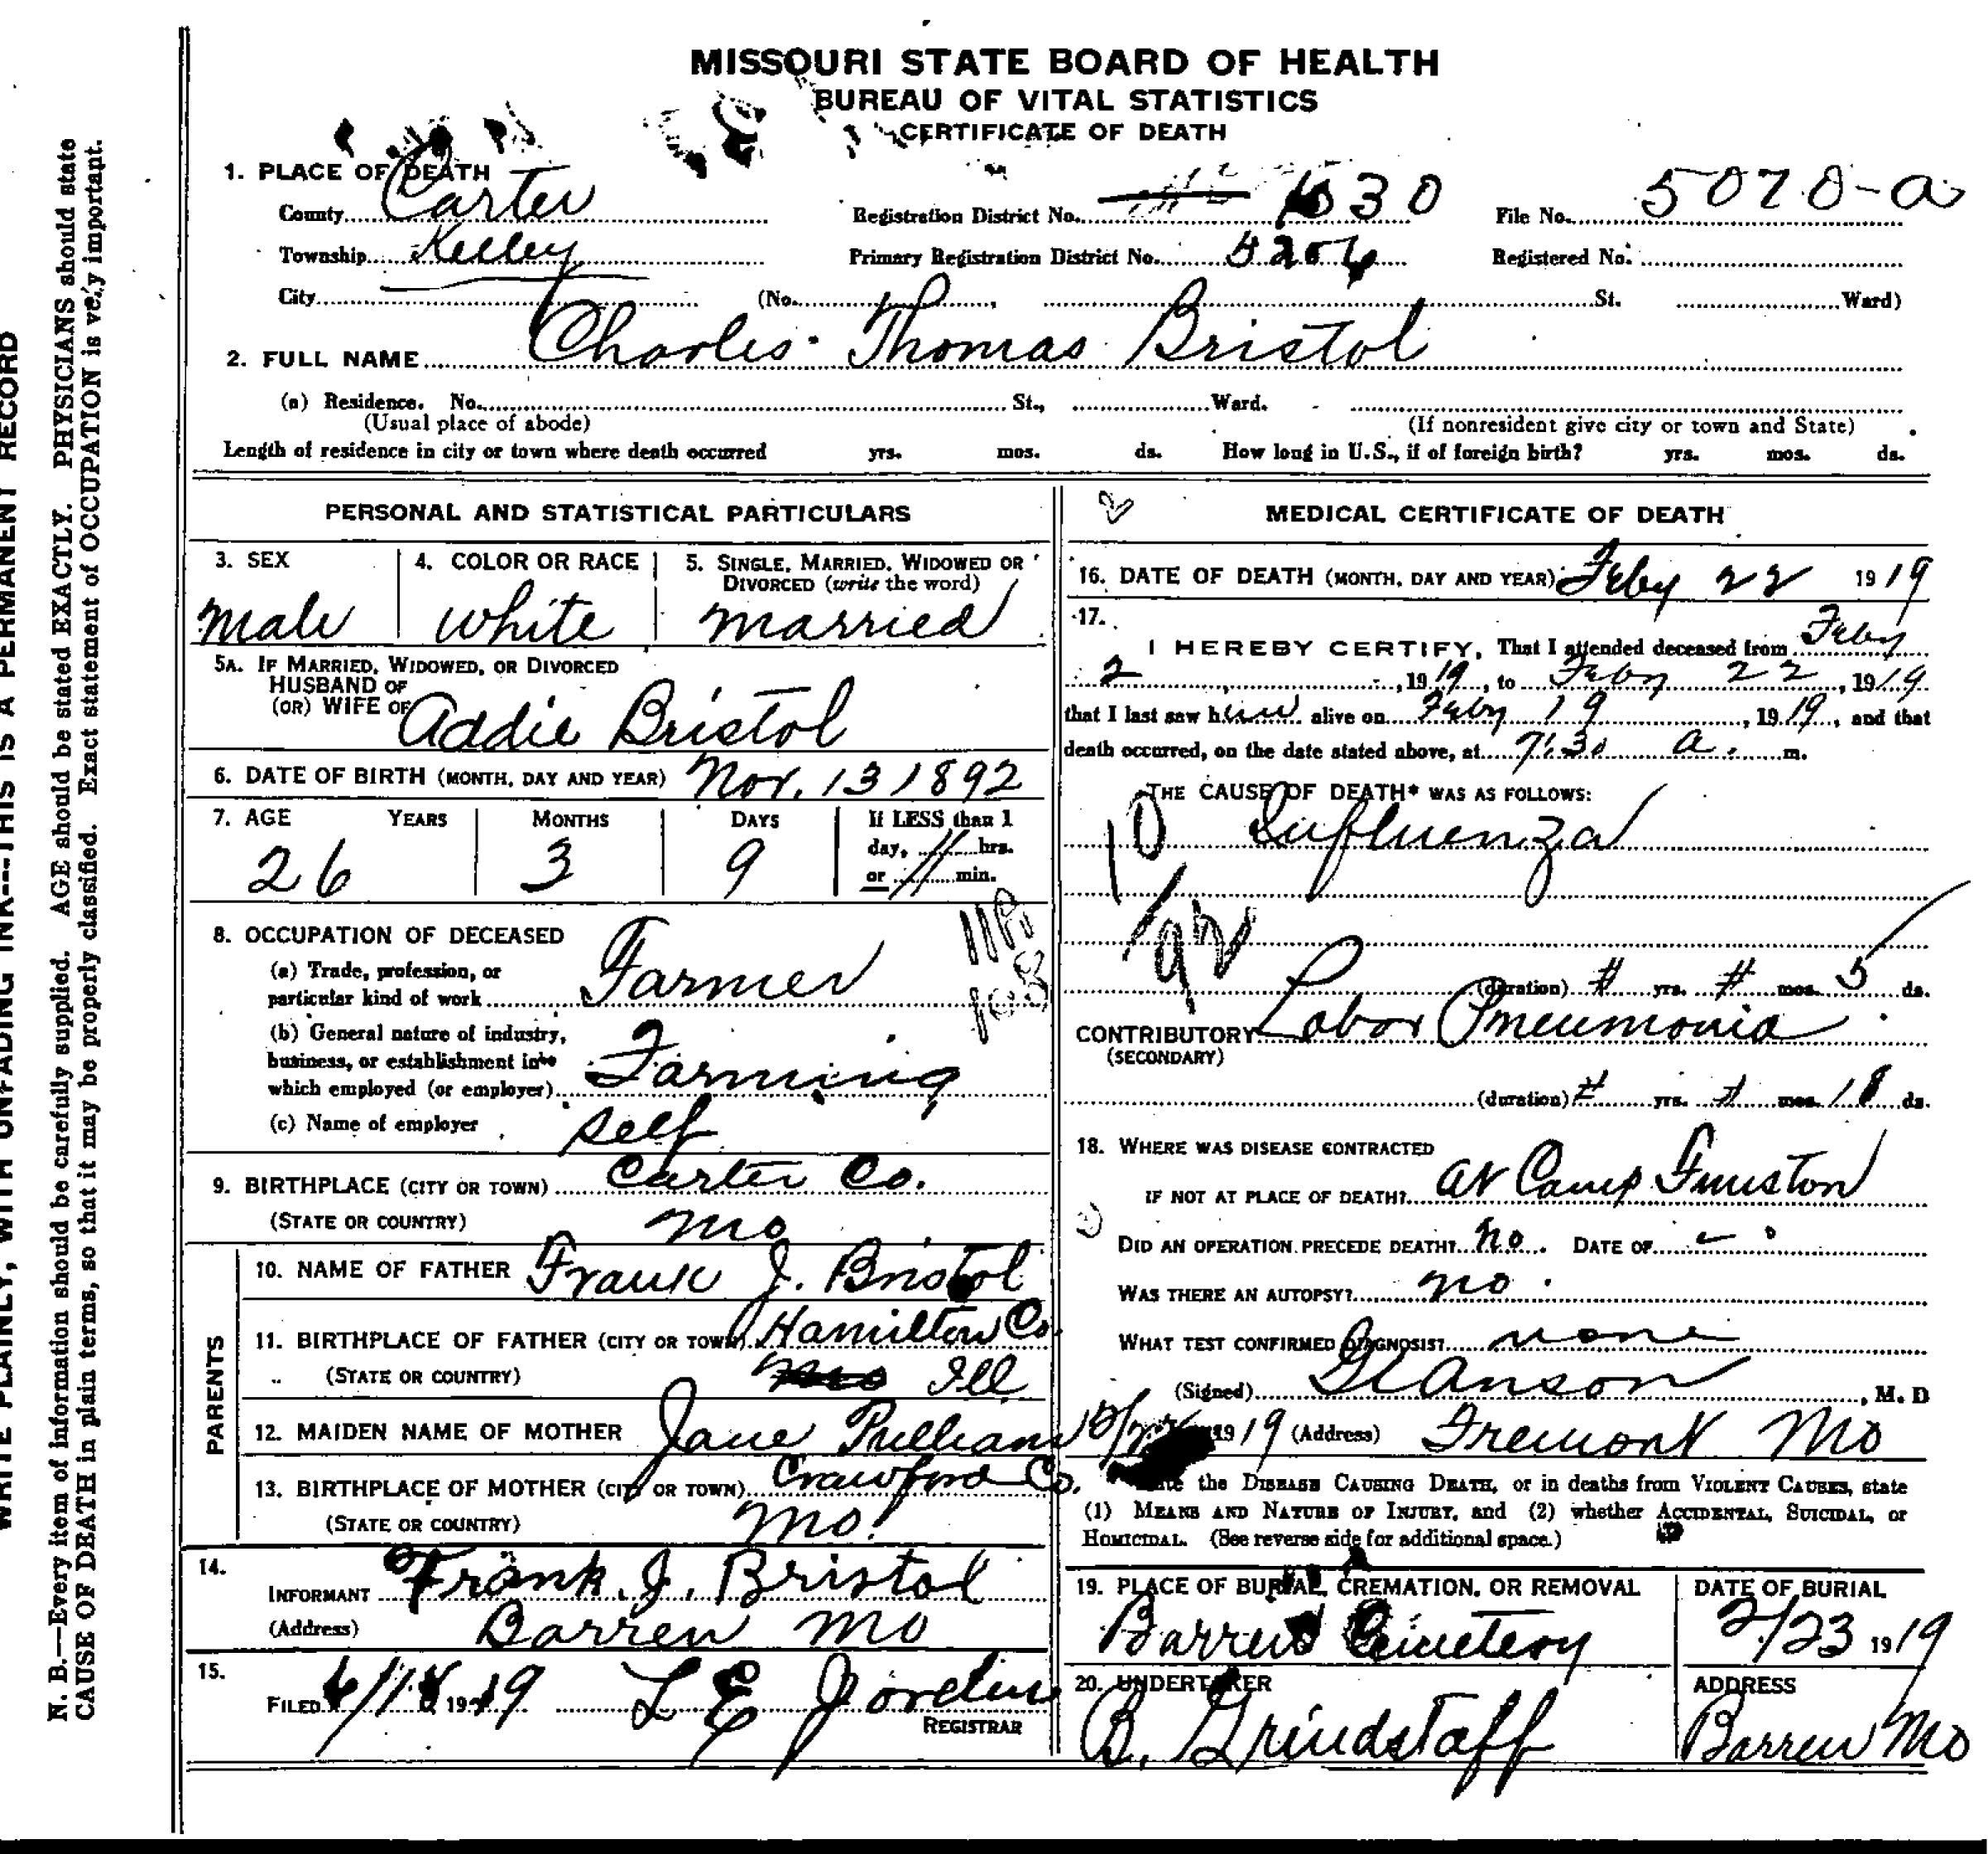 MISSOURI STATE BOARD OF HEALTH
BUREAU OF VITAL STATISTICS
CERTIFICATE OF DEATH
1. PLACE OF DEATH
County Carter Registration District No. 30 File No. 5070-a
Township Kelley Primary Registration District No. 5206 Registered No.
City (No. , St. Ward)
2. FULL NAME Charles Thomas Bristol
(a) Residence. No. St., Ward.
(Usual place of abode) (If nonresident give city or town and State)
Length of residence in city or town where death occurred yrs. mos. ds. How long in U.S., if of foreign birth? yrs. mos. ds.
PERSONAL AND STATISTICAL PARTICULARS
3. SEX 4. COLOR OR RACE 5. SINGLE, MARRIED, WIDOWED OR
DIVORCED (write the word)
male white married
5A. IF MARRIED, WIDOWED, OR DIVORCED
HUSBAND OF
(OR) WIFE OF Addie Bristol
6. DATE OF BIRTH (MONTH, DAY AND YEAR) Nov. 13 1892
7. AGE YEARS MONTHS DAYS If LESS than 1
day, hrs.
or min.
26 3 9
8. OCCUPATION OF DECEASED
(a) Trade, profession, or
particular kind of work Farmer
(b) General nature of industry,
business, or establishment in
which employed (or employer) Farming
(c) Name of employer self
9. BIRTHPLACE (CITY OR TOWN) Carter Co.
(STATE OR COUNTRY) Mo
PARENTS
10. NAME OF FATHER Frank J. Bristol
11. BIRTHPLACE OF FATHER (CITY OR TOWN) Hamilton Co.
(STATE OR COUNTRY) Ill
12. MAIDEN NAME OF MOTHER Jane Pulliam
13. BIRTHPLACE OF MOTHER (CITY OR TOWN) Crawford Co.
(STATE OR COUNTRY) Mo.
14.
INFORMANT Frank. J. Bristol
(Address) Barren Mo
15.
FILED 1919 L E Jorden
REGISTRAR
MEDICAL CERTIFICATE OF DEATH
16. DATE OF DEATH (MONTH, DAY AND YEAR) Feby 22 1919
17.
I HEREBY CERTIFY, That I attended deceased from Feby
2, 1919, to Feby 22, 1919
that I last saw him alive on Feby 19, 1919, and that
death occurred, on the date stated above, at 7:30 a. m.
THE CAUSE OF DEATH* WAS AS FOLLOWS:
10 Influenza
92
(duration) # yrs. # mos. 5 ds.
CONTRIBUTORY Lobar Pneumonia
(SECONDARY)
(duration) # yrs. # mos. 18 ds.
18. WHERE WAS DISEASE CONTRACTED
IF NOT AT PLACE OF DEATH? at Camp Funston
DID AN OPERATION PRECEDE DEATH? no. DATE OF
WAS THERE AN AUTOPSY? no.
WHAT TEST CONFIRMED DIAGNOSIS? none
(Signed) , M. D
1919 (Address) Fremont Mo
the DISEASE CAUSING DEATH, or in deaths from VIOLENT CAUSES, state
(1) MEANS AND NATURE OF INJURY, and (2) whether ACCIDENTAL, SUICIDAL, or
HOMICIDAL. (See reverse side for additional space.)
19. PLACE OF BURIAL, CREMATION, OR REMOVAL DATE OF BURIAL
Barren Cemetery 2/23 1919
20. UNDERTAKER ADDRESS
B. Grindstaff Barren Mo
WRITE PLAINLY, WITH UNFADING INK---THIS IS A PERMANENT RECORD
N. B.—Every item of information should be carefully supplied. AGE should be stated EXACTLY. PHYSICIANS should state
CAUSE OF DEATH in plain terms, so that it may be properly classified. Exact statement of OCCUPATION is very important.